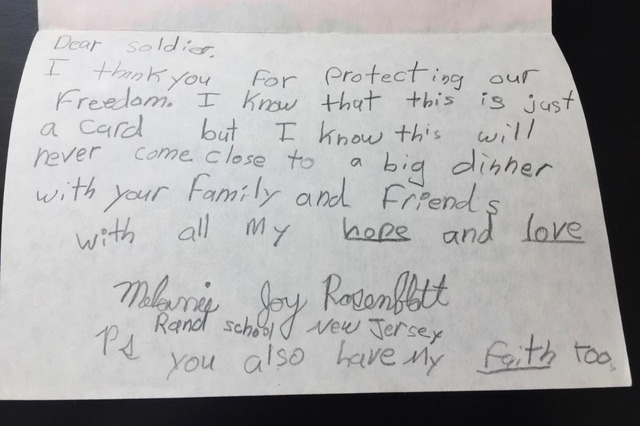 Dear Soldier,
I thank you For Protecting our
Freedom. I know that this is just
a card but I know this will
never come close to a big dinner
with your Family and Friends
with all My hope and love
Melanie Joy Rosenblatt
Rand school New Jersey
Ps you also have My Faith Too.